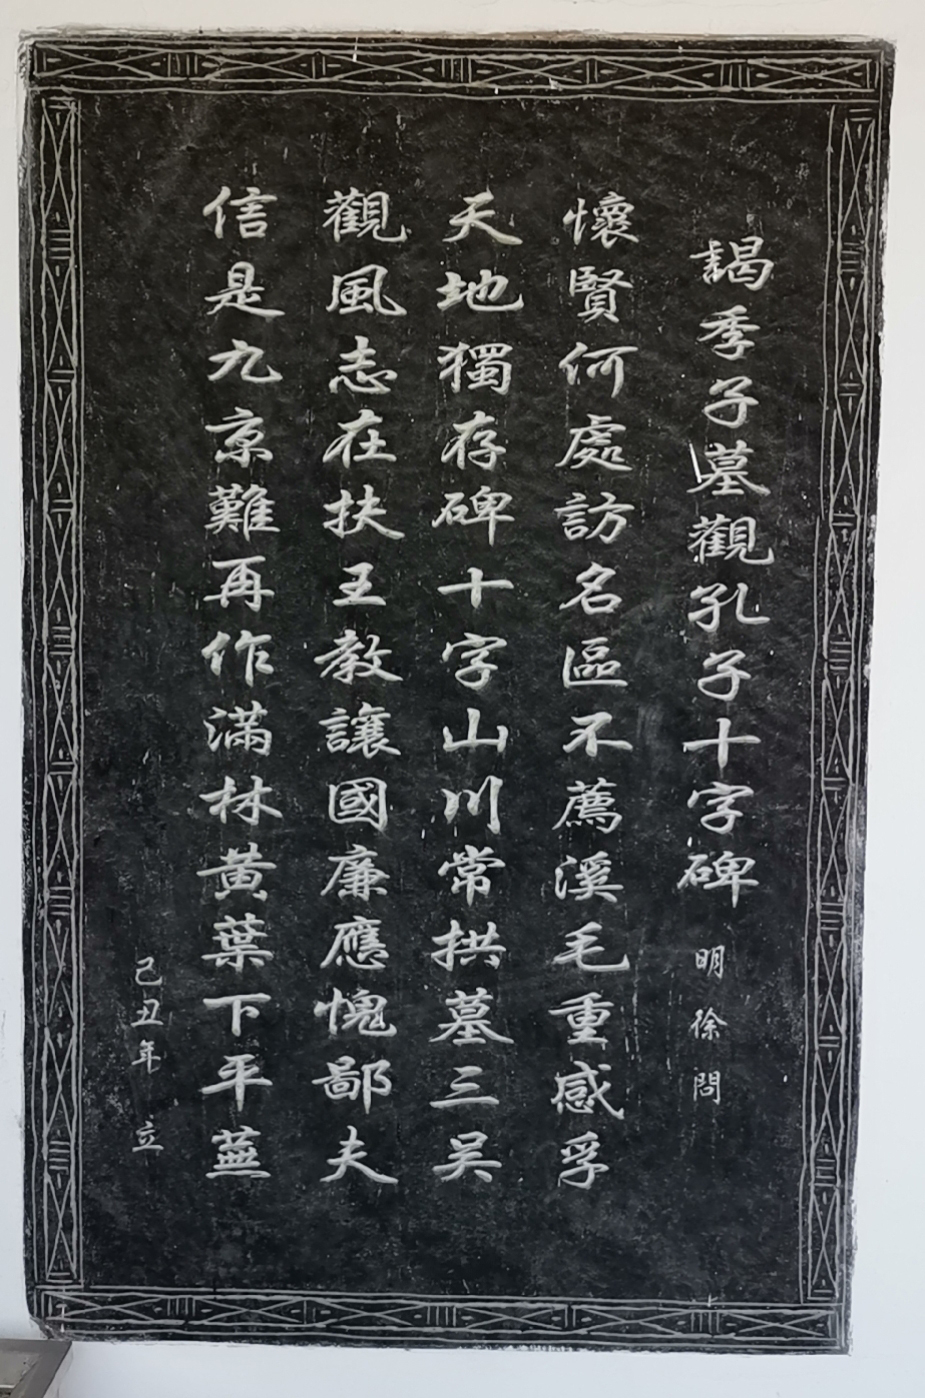 謁季子墓觀孔子十字碑 明 徐問
懷賢何處訪名區不薦溪毛重感孚
天地獨存碑十字山川常拱墓三吴
觀風志在扶王教讓國廉應愧鄙夫
信是九京難再作滿林黄葉下平蕪
己丑年 立